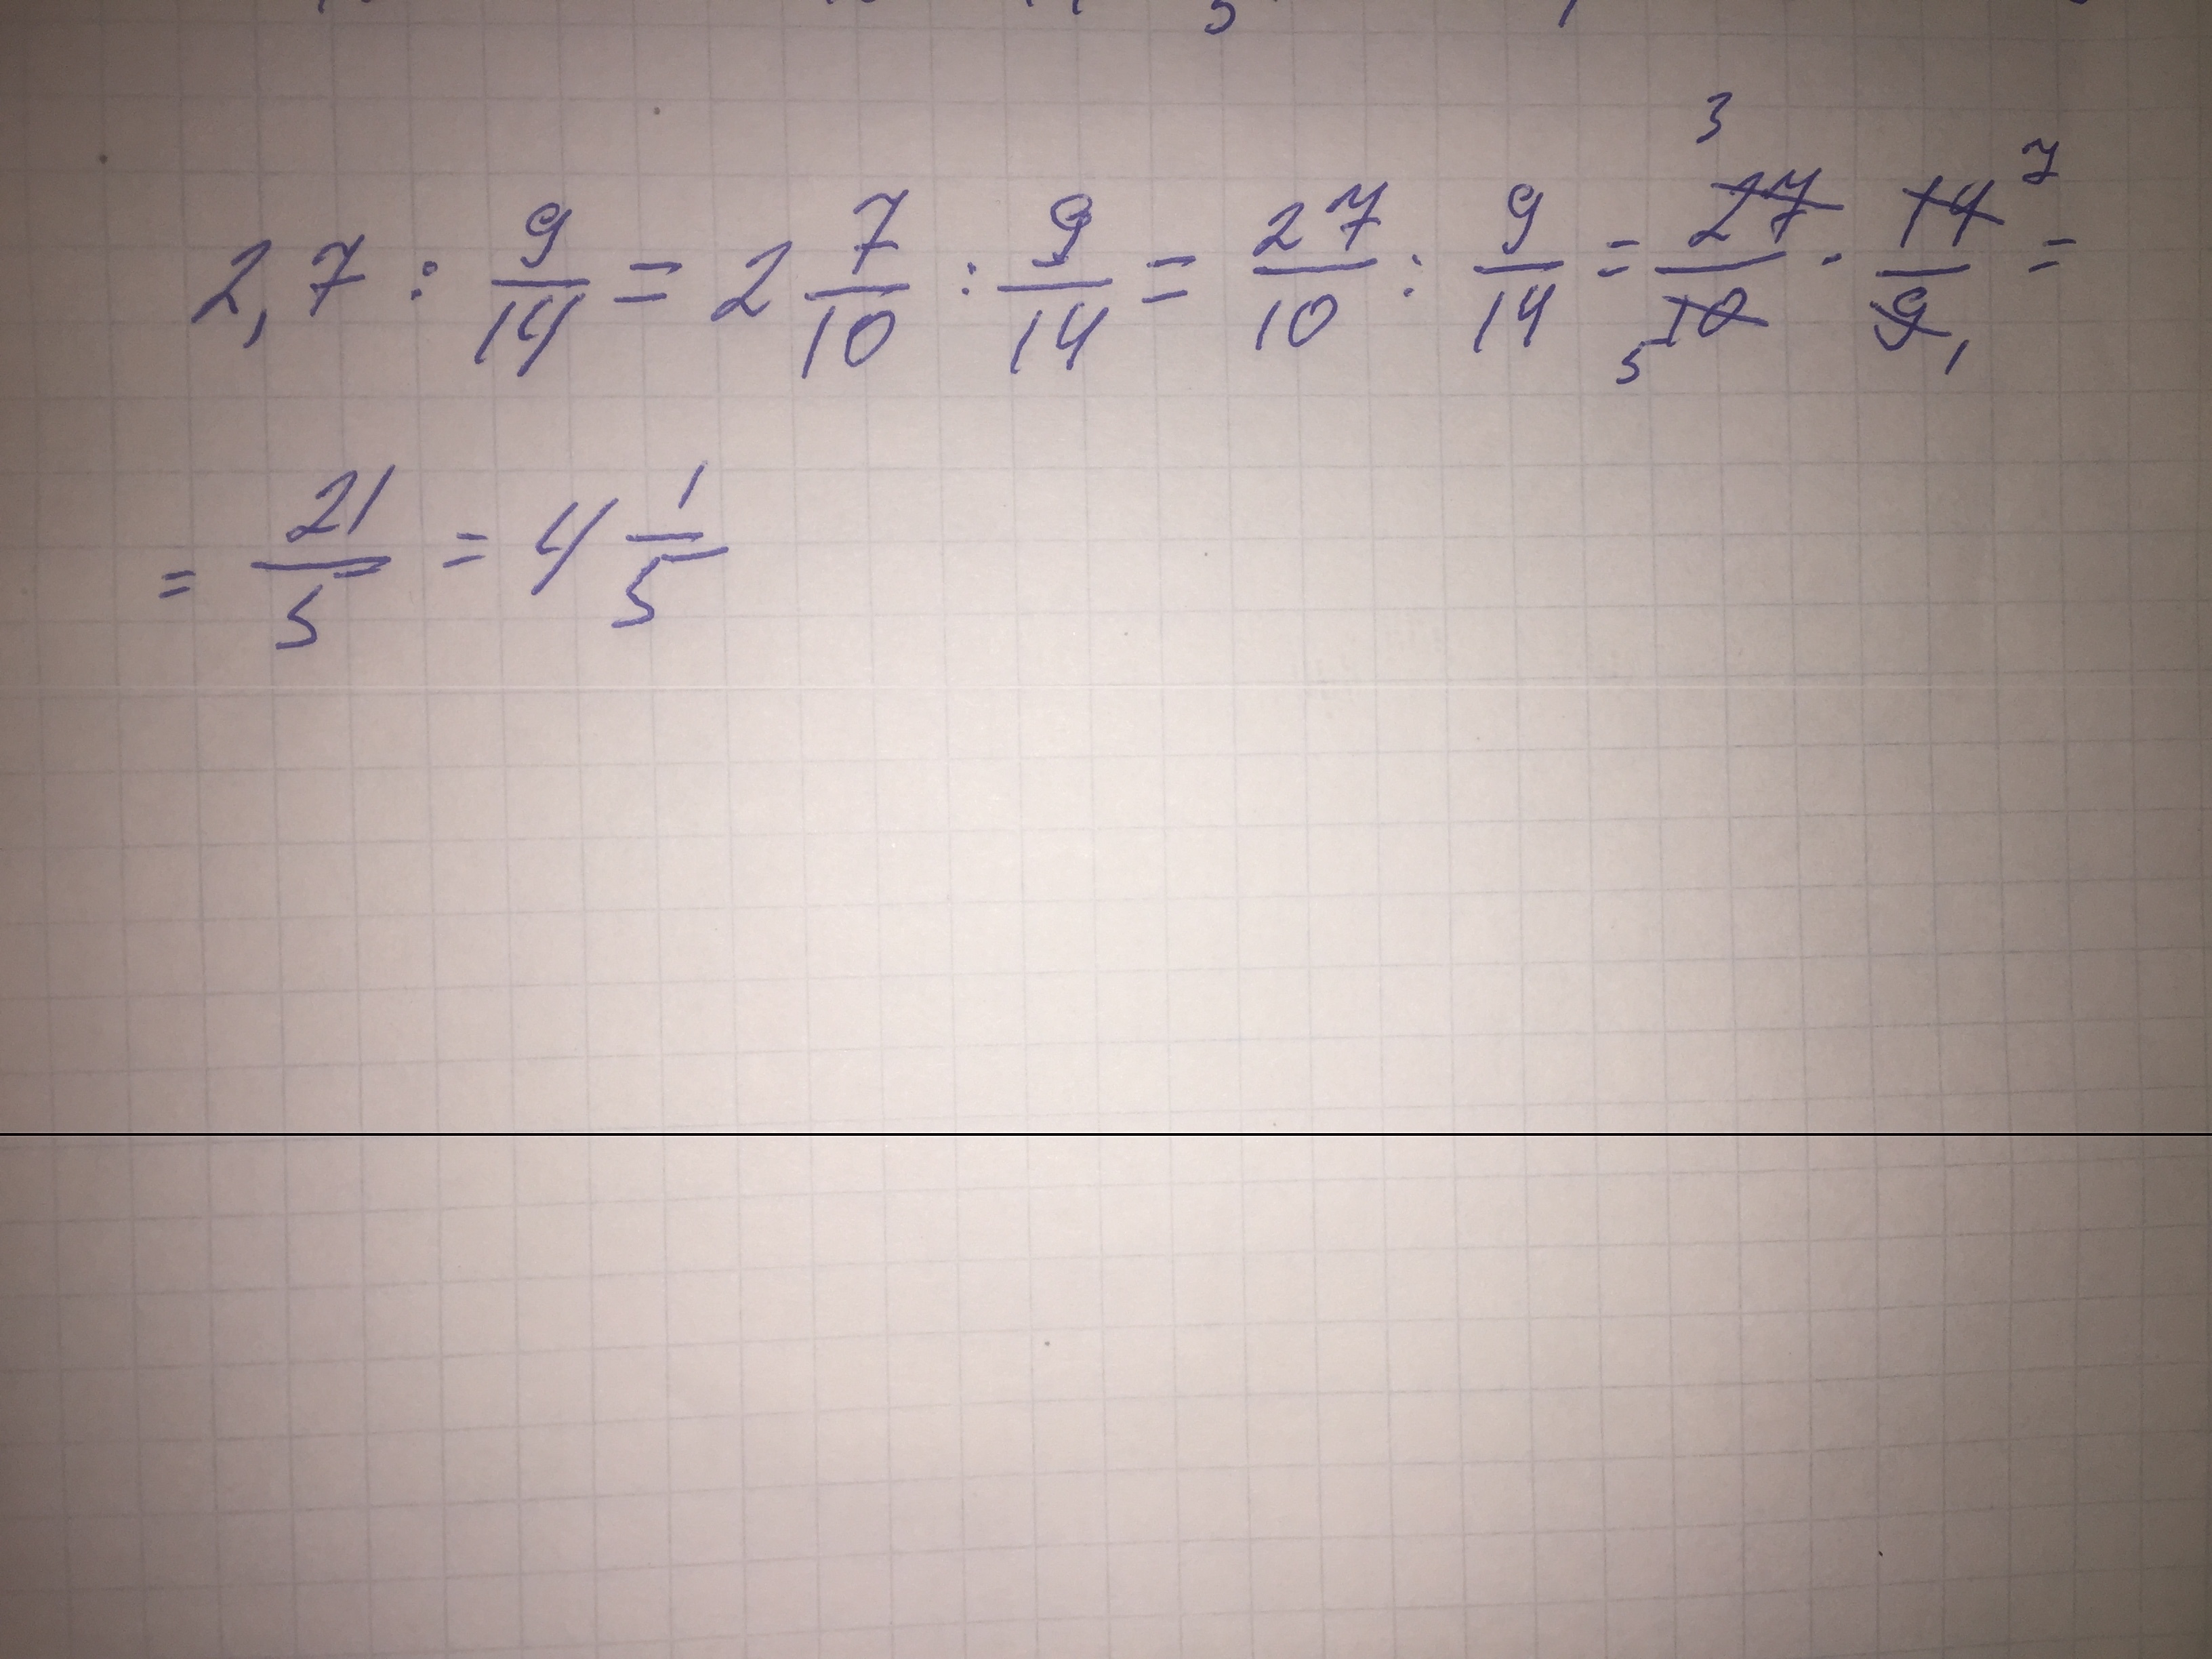 2,7 : 9/14 = 2 7/10 : 9/14 = 27/10 : 9/14 = 27/10 3 5 · 14/9 7 1 =
= 21/5 = 4 1/5